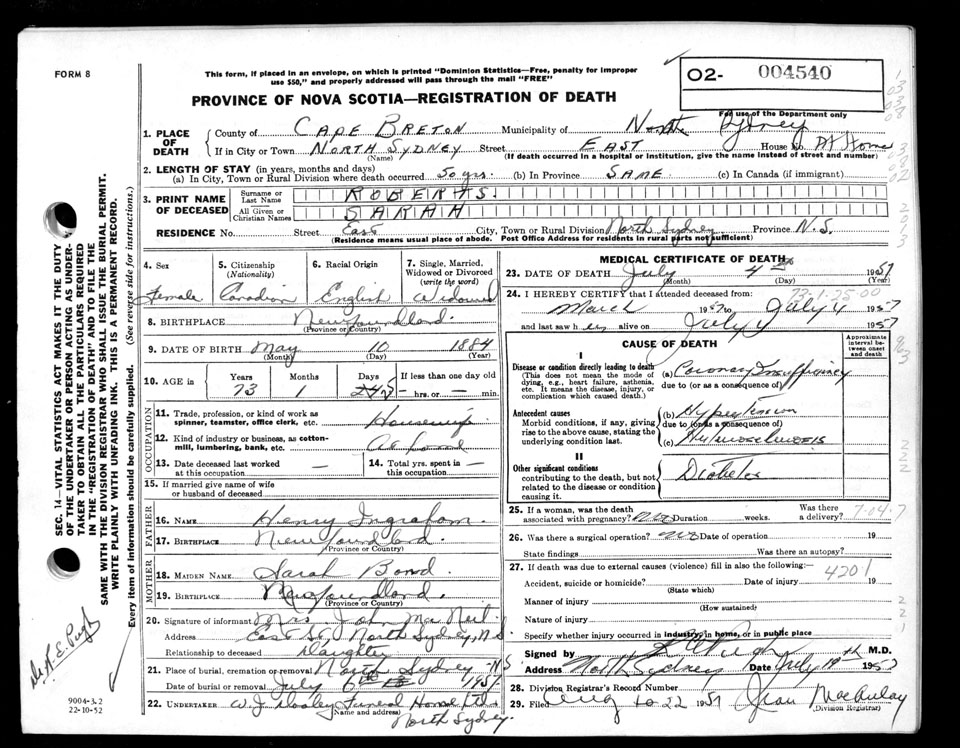 FORM 8
This form, if placed in an envelope, on which is printed "Dominion Statistics—Free, penalty for improper
use $50," and properly addressed will pass through the mail "FREE"
O2- 004540
For use of the Department only
PROVINCE OF NOVA SCOTIA—REGISTRATION OF DEATH
1. PLACE OF DEATH
County of CAPE BRETON Municipality of North Sydney
If in City or Town NORTH SYDNEY Street EAST House No. At Home
(Name) (If death occurred in a hospital or institution, give the name instead of street and number)
2. LENGTH OF STAY (in years, months and days)
(a) In City, Town or Rural Division where death occurred. 50 yrs. (b) In Province SAME. (c) In Canada (if immigrant)
3. PRINT NAME OF DECEASED
Surname or Last Name ROBERTS.
All Given or Christian Names SARAH
RESIDENCE No. Street East City, Town or Rural Division North Sydney Province N.S.
(Residence means usual place of abode. Post Office Address for residents in rural parts not sufficient)
4. Sex Female
5. Citizenship (Nationality) Canadian
6. Racial Origin English
7. Single, Married, Widowed or Divorced (write the word) Widowed
8. BIRTHPLACE Newfoundland.
(Province or Country)
9. DATE OF BIRTH May 10 1884
(Month) (Day) (Year)
10. AGE in Years 73 Months 1 Days If less than one day old — hrs. or — min.
OCCUPATION
11. Trade, profession, or kind of work as spinner, teamster, office clerk, etc. Housewife
12. Kind of industry or business, as cotton-mill, lumbering, bank, etc. At home
13. Date deceased last worked at this occupation —
14. Total yrs. spent in this occupation —
15. If married give name of wife or husband of deceased
FATHER
16. NAME Henry Ingraham.
17. BIRTHPLACE Newfoundland.
(Province or Country)
MOTHER
18. MAIDEN NAME Sarah Bond
19. BIRTHPLACE Newfoundland.
(Province or Country)
20. Signature of informant Mrs. John Mac Neil
Address East St, North Sydney, N.S
Relationship to deceased Daughter
21. Place of burial, cremation or removal North Sydney N.S
Date of burial or removal July 6th 1957
22. UNDERTAKER W. J. Dooley Funeral Home Ltd.
(Name and address)
North Sydney.
MEDICAL CERTIFICATE OF DEATH
23. DATE OF DEATH July 4th 1957
(Month) (Day) (Year)
24. I HEREBY CERTIFY that I attended deceased from:
March 1957 to July 4 1957
and last saw her alive on July 4 1957
CAUSE OF DEATH
Approximate interval between onset and death
I
Disease or condition directly leading to death
(This does not mean the mode of dying, e.g., heart failure, asthenia, etc. It means the disease, injury, or complication which caused death.)
(a) Coronary Insufficiency
due to (or as a consequence of)
Antecedent causes
Morbid conditions, if any, giving rise to the above cause, stating the underlying condition last.
(b) Hypertension
due to (or as a consequence of)
(c)
II
Other significant conditions
contributing to the death, but not related to the disease or condition causing it.
Diabetes
25. If a woman, was the death associated with pregnancy? No Duration weeks. Was there a delivery?
7-04-7
26. Was there a surgical operation? No Date of operation 19
State findings Was there an autopsy?
27. If death was due to external causes (violence) fill in also the following:—
4201
Accident, suicide or homicide? Date of injury 19
(State which)
Manner of injury
(How sustained)
Nature of injury
Specify whether injury occurred in industry, in home, or in public place
Signed by A E Pugh M.D.
Address North Sydney Date July 10th 1957
28. Division Registrar's Record Number
29. Filed Aug 22 1957 Jean MacAulay
(Division Registrar)
SEC. 14—VITAL STATISTICS ACT MAKES IT THE DUTY
OF THE UNDERTAKER OR PERSON ACTING AS UNDERTAKER
TO OBTAIN ALL THE PARTICULARS REQUIRED
IN THE "REGISTRATION OF DEATH" AND TO FILE THE
SAME WITH THE DIVISION REGISTRAR WHO SHALL ISSUE THE BURIAL PERMIT.
WRITE PLAINLY WITH UNFADING INK. THIS IS A PERMANENT RECORD.
Every item of information should be carefully supplied. (See reverse side for instructions.)
Dr A. E. Pugh
9004-3.2
22-10-52